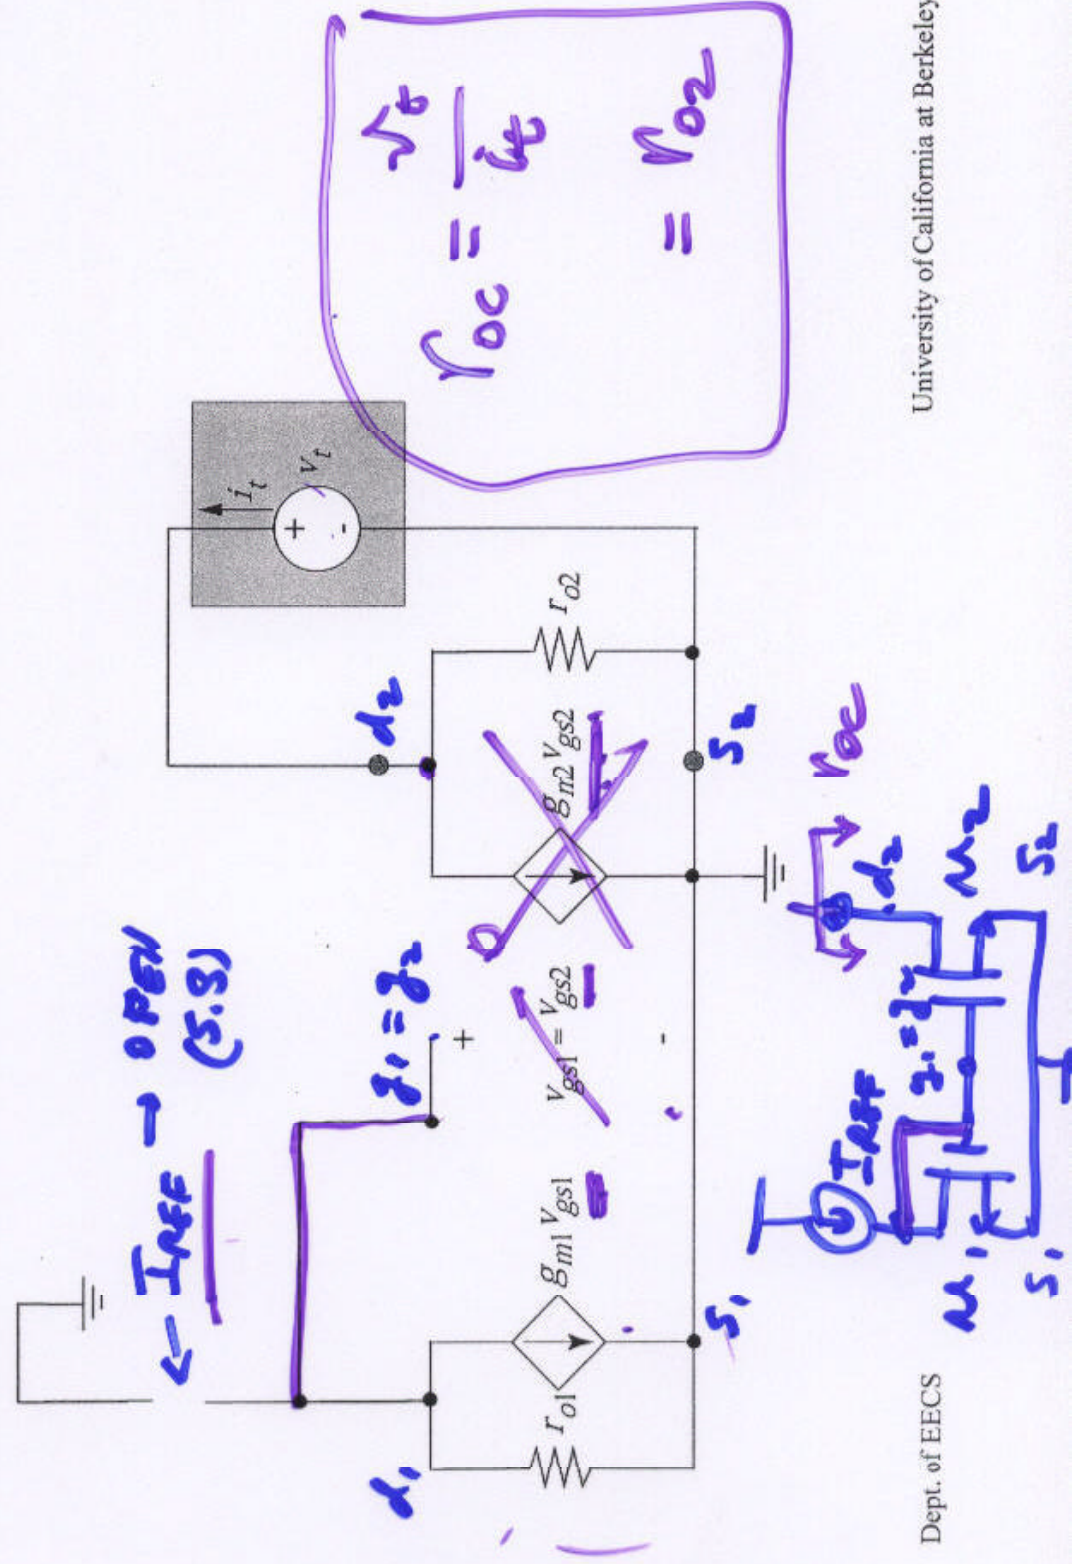 ← I_REF → OPEN
(S.S)
d₁
r_o1
g_m1 v_gs1
g₁ = g₂
+
v_gs1 = v_gs2
-
0
g_m2 v_gs2
d₂
r_o2
i_t
+
v_t
-
r_oc = v_t / i_t
= r_o2
S₁
S₂
r_oc
I_REF
g₁ = g₂
d₂
M₁
M₂
S₁
S₂
Dept. of EECS
University of California at Berkeley